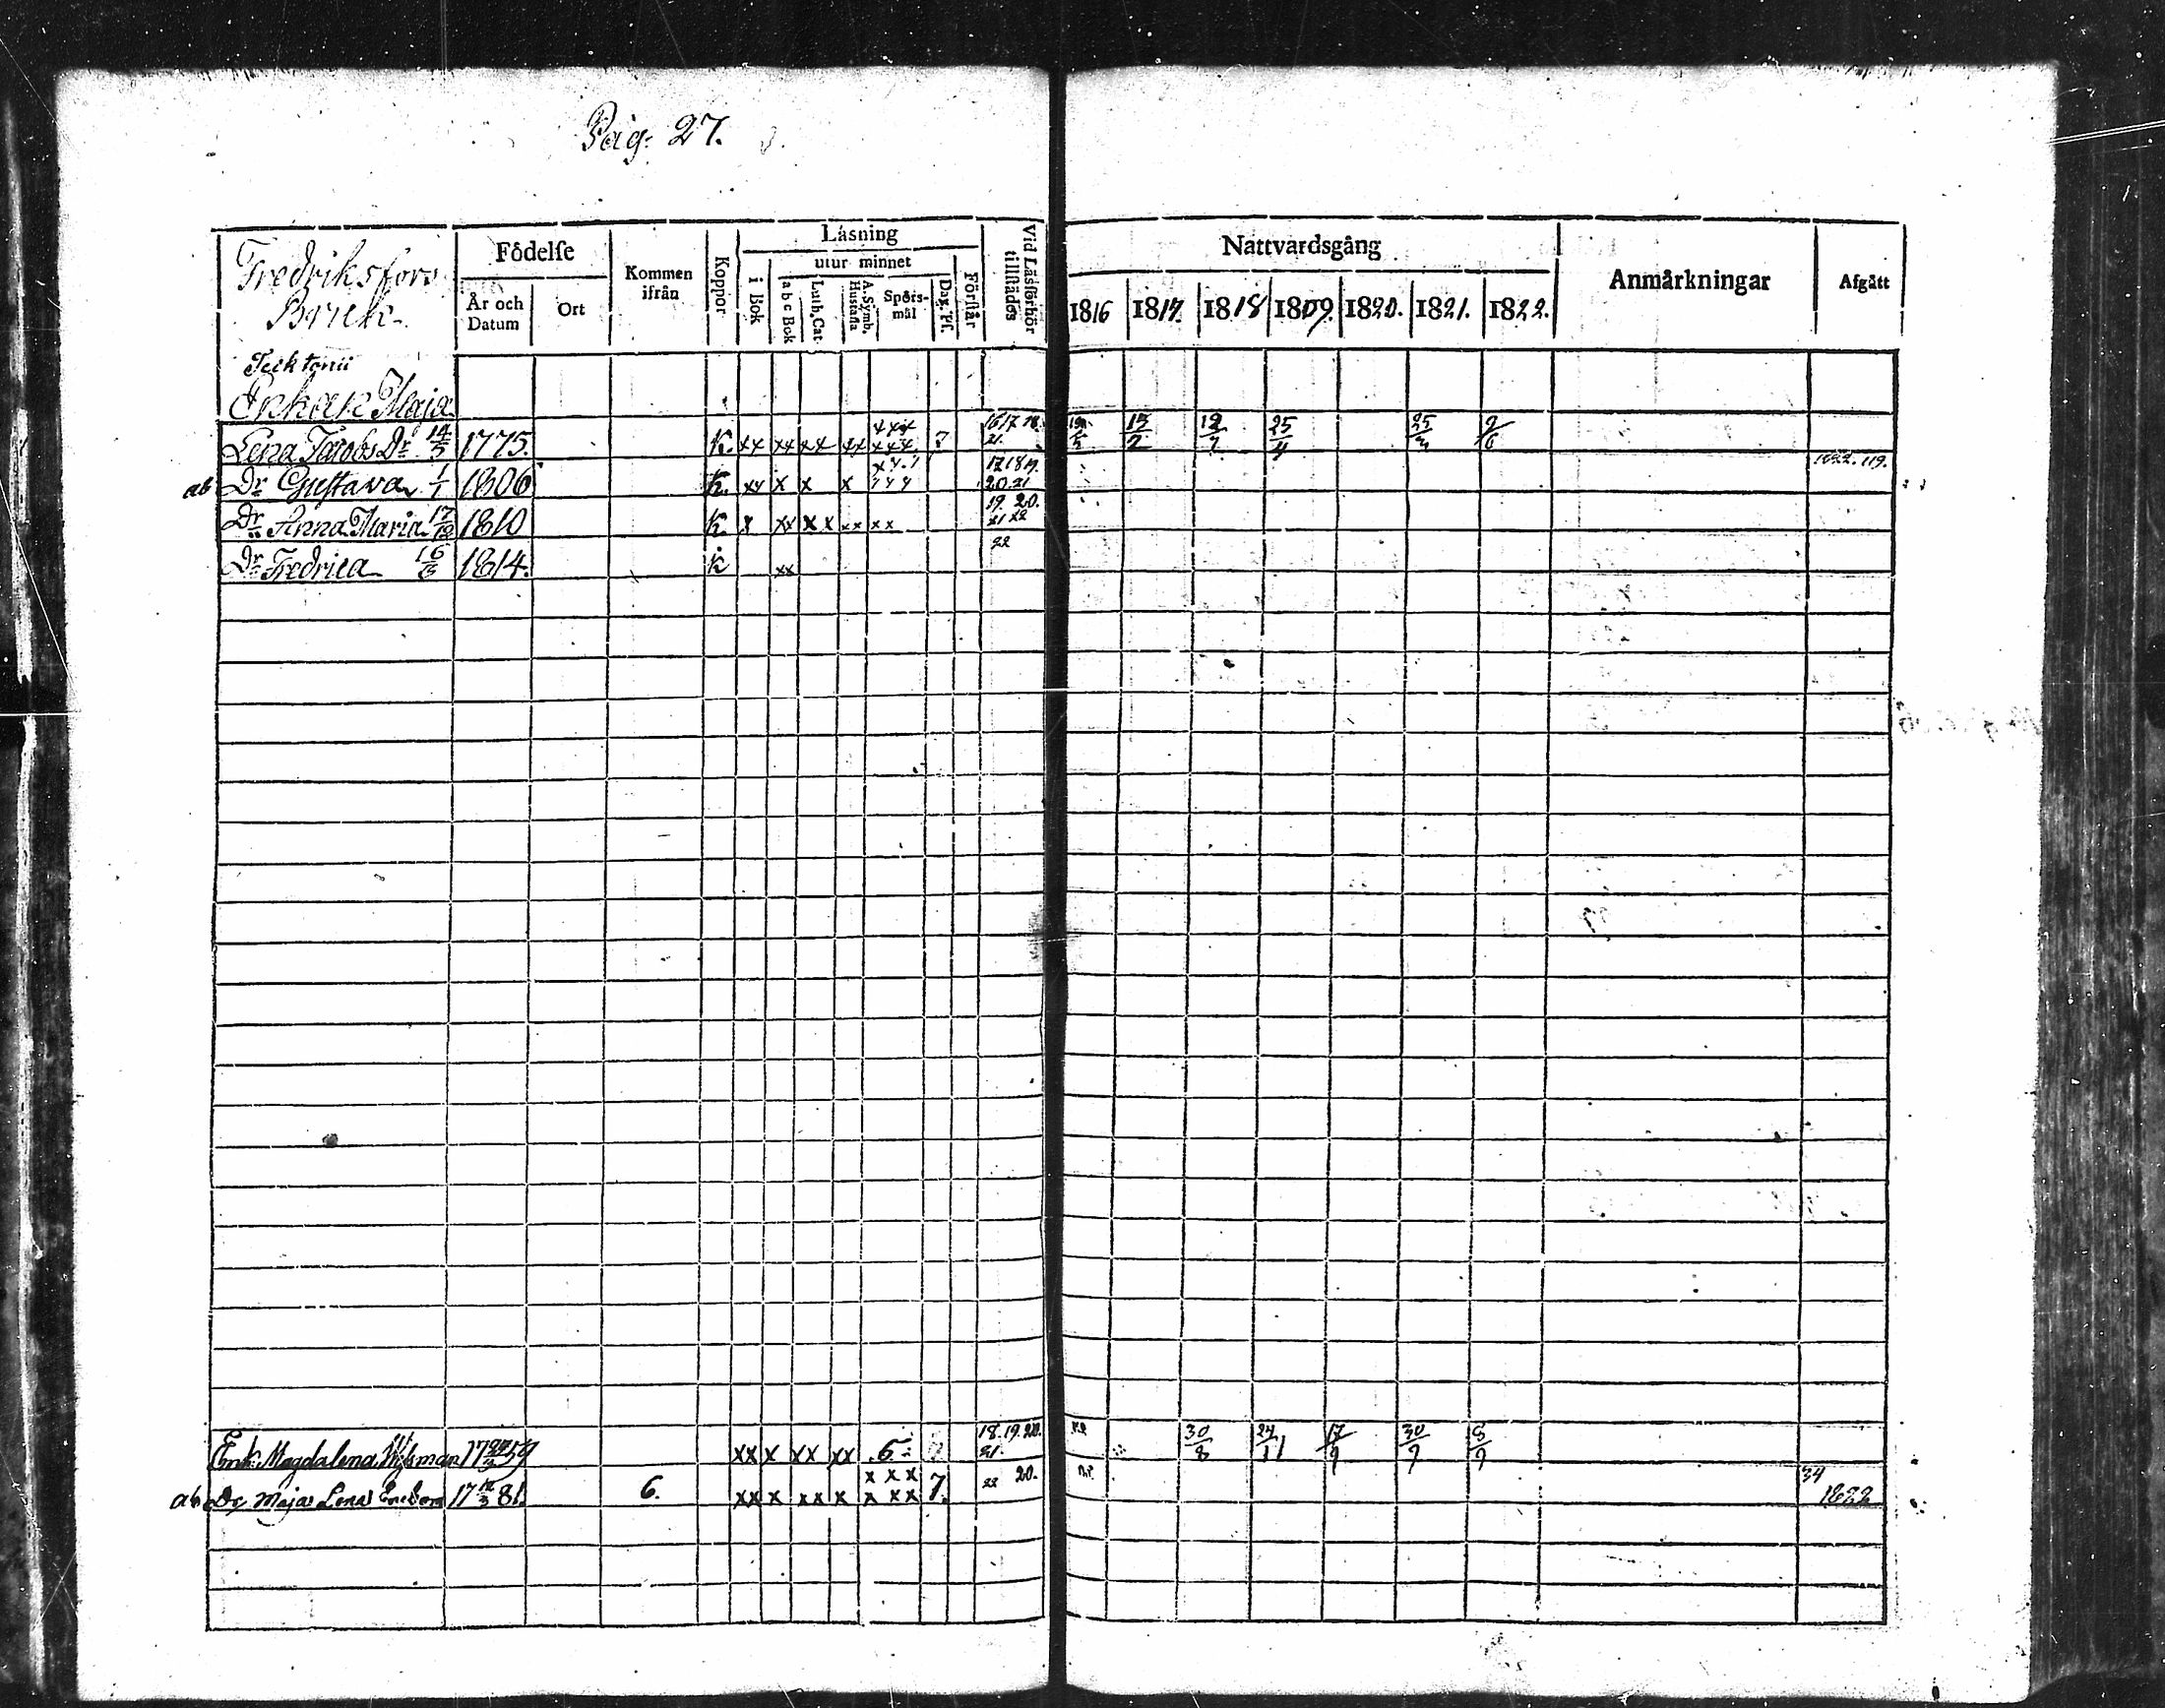 Pag. 27.
Fredriksfors
Bruk.
Födelse
År och Datum
Ort
Kommen ifrån
Koppor
Läsning
i Bok
utur minnet
a b c Bok
Luth. Cat
A. Symb. Hustafla
Spörs-mål
Dag. Ps.
Förstår
Vid Läsförhör tillstädes
Nattvardsgång
1816 1817. 1818 1809. 1820. 1821. 1822.
Anmärkningar
Afgått
Enkan Maja
Lena Jacobs Dr 14/5 1775. K. xx xx xx xx xxx xxx 7 16 17 18. 21. 15/7 12/7 25/4
ab Dr Gustava 1/1 1806 K. xx x x x 17 18 19. 20. 21 1822. 119.
Dr Anna Maria 17/12 1810 K x xx xx xx xx 19. 20. 21 22
Dr Fredrica 1814. k xx 22
Enk. Magdalena 17 59 xx x xx xx 5 18. 19. 20. 21 30/8 24/11 17/9 30/9 8/9
ab Dr Maja Lena 17 81. 6. xx x xx x xxx xxx 7. 22 20. 34 1822